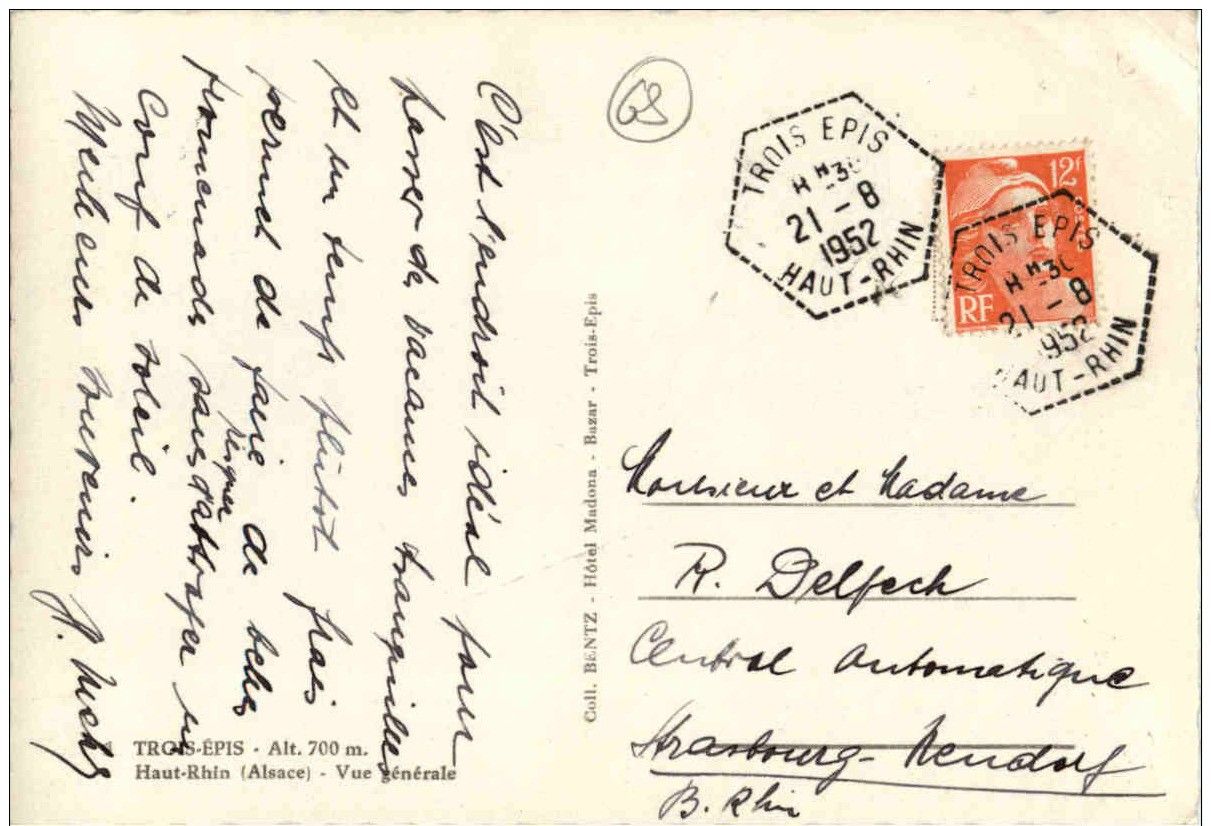 C'est l'endroit idéal pour
passer des vacances tranquilles
et un temps plutôt frais
permet de faire de belles
promenades sans risquer d'attraper un
coup de soleil.
Meilleurs souvenirs
TROIS-ÉPIS - Alt. 700 m.
Haut-Rhin (Alsace) - Vue générale
Coll. BENTZ - Hôtel Madona - Bazar - Trois-Epis
68
TROIS EPIS
21 - 8
1952
HAUT-RHIN
12f
RF
TROIS EPIS
21 - 8
1952
HAUT-RHIN
Monsieur et Madame
R. Delfech
Central Automatique
Strasbourg - Neudorf
B. Rhin